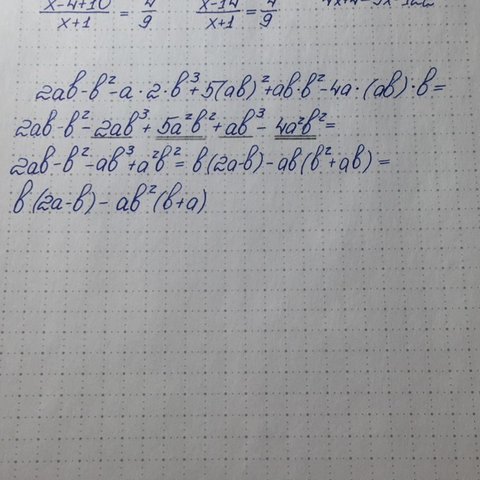 x-4+10 / x+1 = 4/9   x-14 / x+1 = 4/9
2ab-b²-a·2·b³+5(ab)²+ab·b²-4a·(ab)·b=
2ab-b²-2ab³+5a²b²+ab³-4a²b²=
2ab-b²-ab³+a²b²=b(2a-b)-ab(b²+ab)=
b(2a-b)-ab²(b+a)